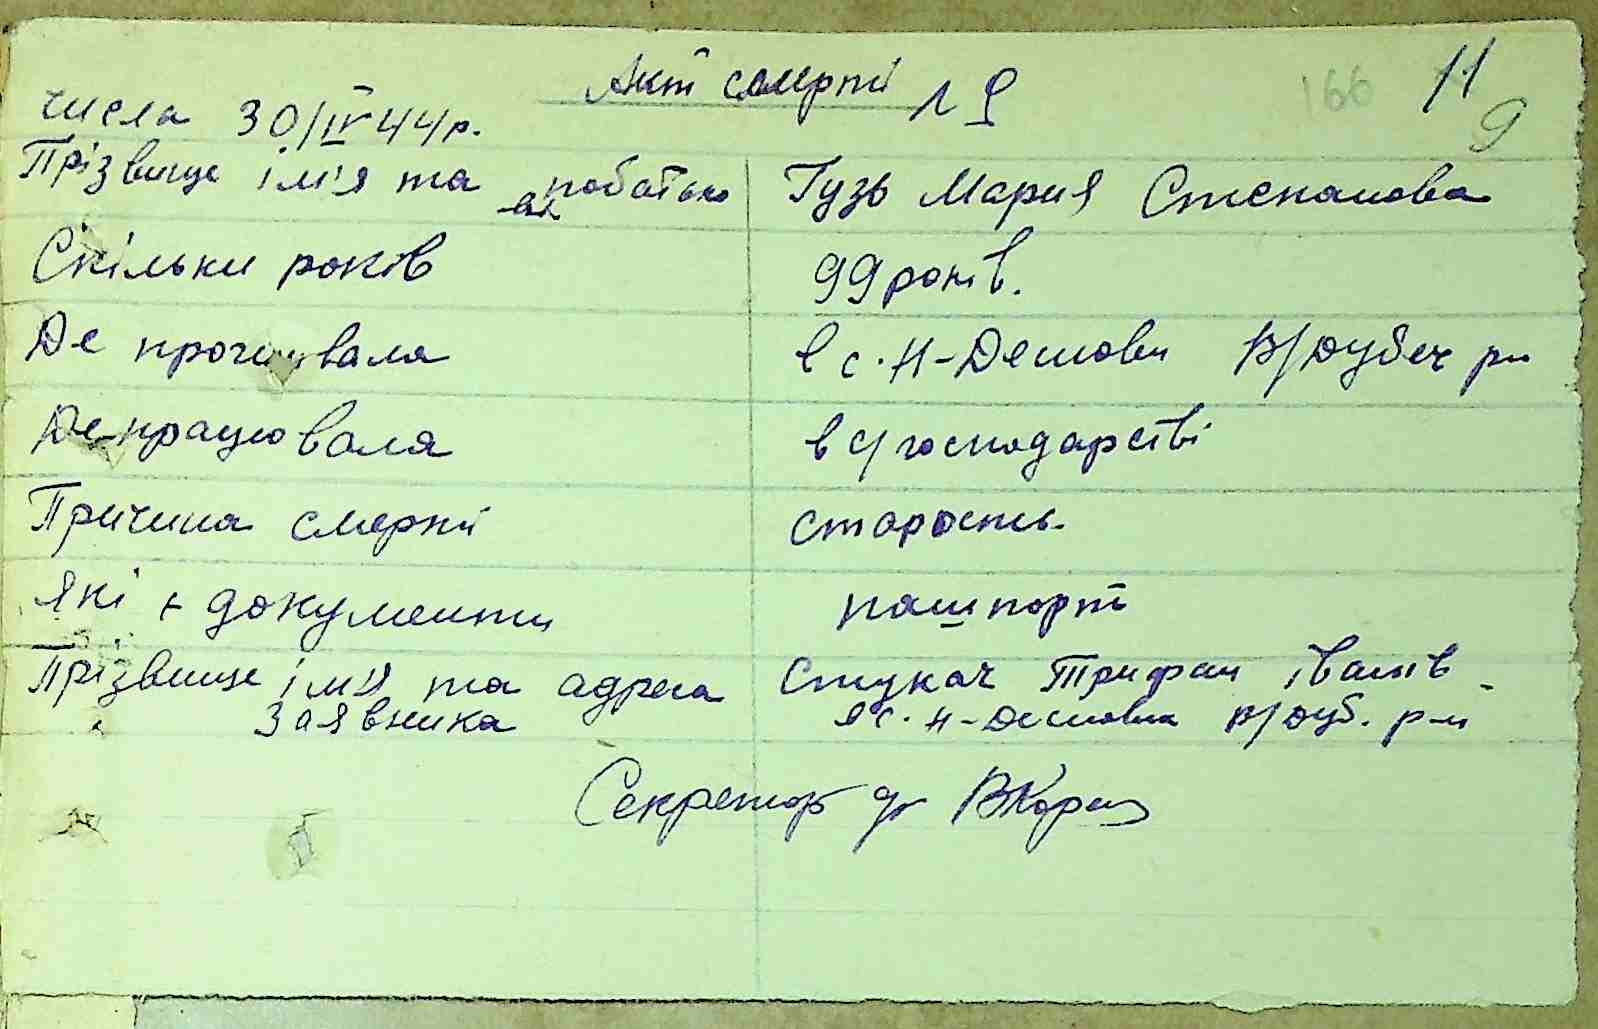 Акт смерти № 9
166 11
9
числа 30/IV 44 р.
Прізвище ім'я та побатько Гузь Мария Степанова
ві
Скільки років 99 років.
Де проживала в с. Н-Дешовки В/Дубеч р-н
Де працювала в с/господарстві
Причина смерти старость
Які є документи пашпорт
Прізвище імя та адреса Стукач Трифан іванів
заявника с. Н-Дешовка В/Дуб. р-н
Секретар